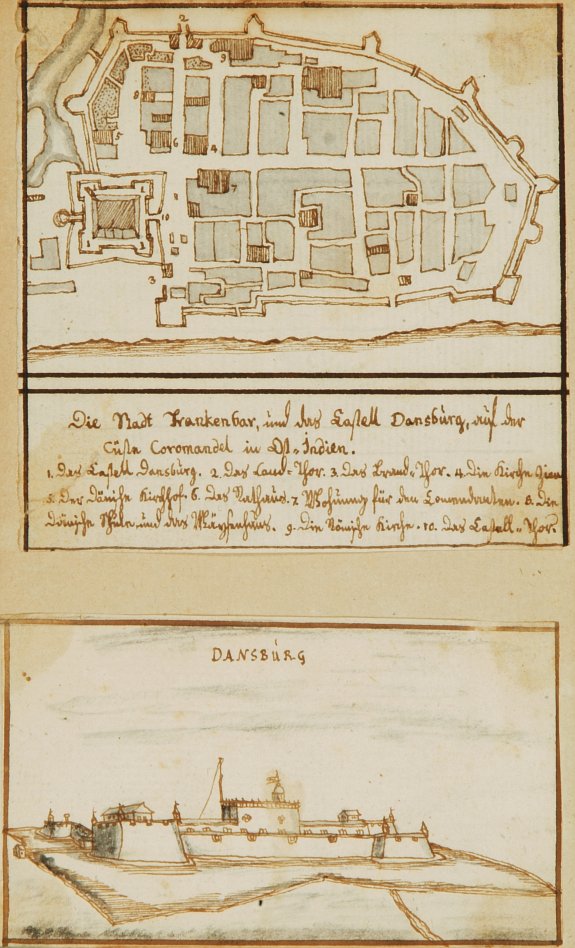 2
9
8
5
6
4
7
1
10
3
Die Stadt Trankenbar, und das Castell Dansbürg, auf der
Cüste Coromandel in Ost-Indien.
1. Das Castell Dansbürg. 2. Das Land-Thor. 3. Das Strand-Thor. 4. Die Kirche
5. Der Dänische Kirchhof. 6. Das Rathaus. 7. Wohnung für den Comendanten. 8. Die
Dänische Schule und das Wäysenhaus. 9. Die Römische Kirche. 10. Das Castell-Thor.
DANSBÜRG